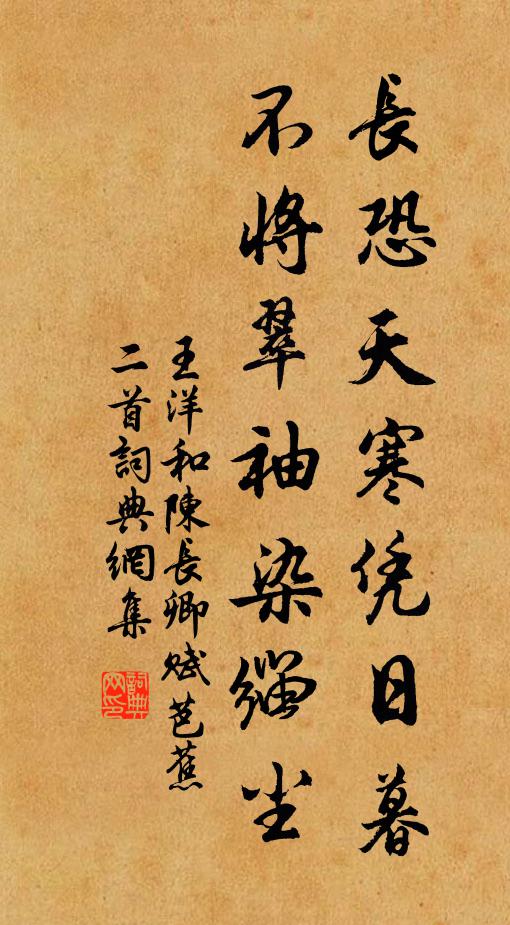 長恐天寒凭日暮
不將翠袖染緇尘
王洋和陳長卿賦芭蕉
二首詞典網集
詞典网印